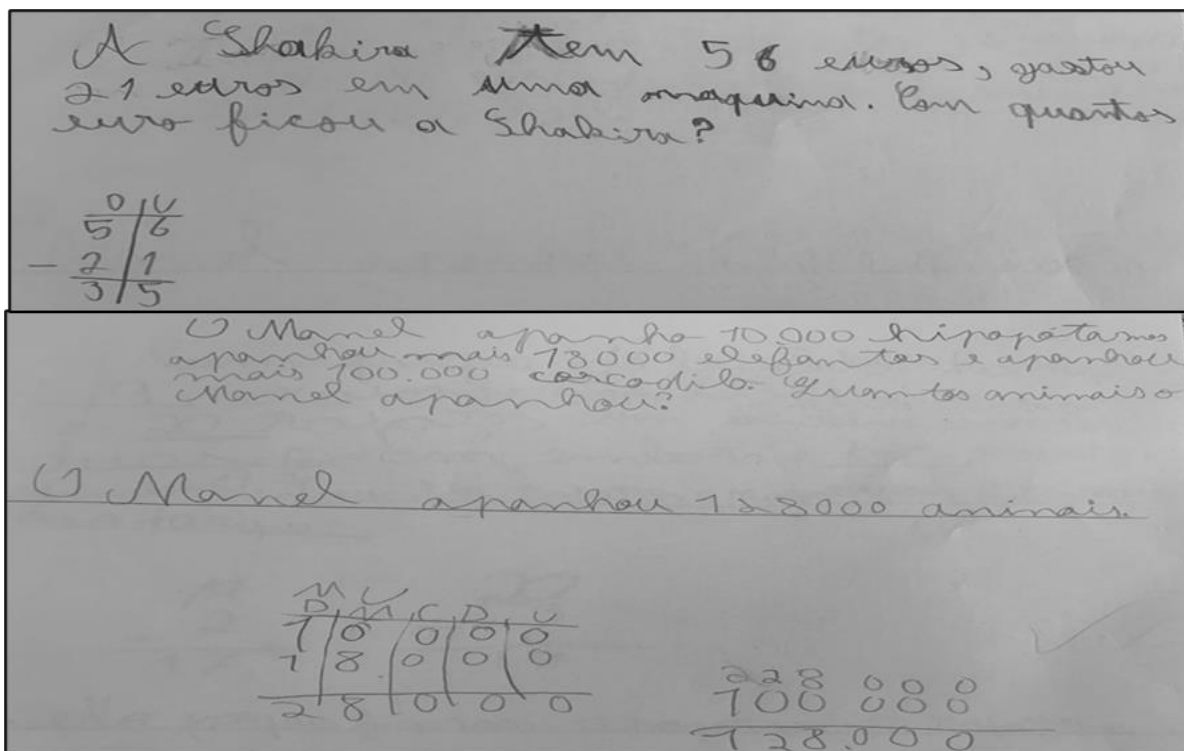 A Shakira tem 56 euros, gastou
21 euros em uma maquina. Com quantos
euro ficou a Shakira?
D U
5 6
- 2 1
3 5
O Manel apanho 10.000 hipopótamos
apanhou mais 18000 elefantes e apanhou
mais 100.000 corcodilo. Quantos animais o
Manel apanhou?
O Manel apanhou 128000 animais.
M U
D M C D U
1 0 0 0 0
1 8 0 0 0
2 8 0 0 0
28 000
100 000
128.000